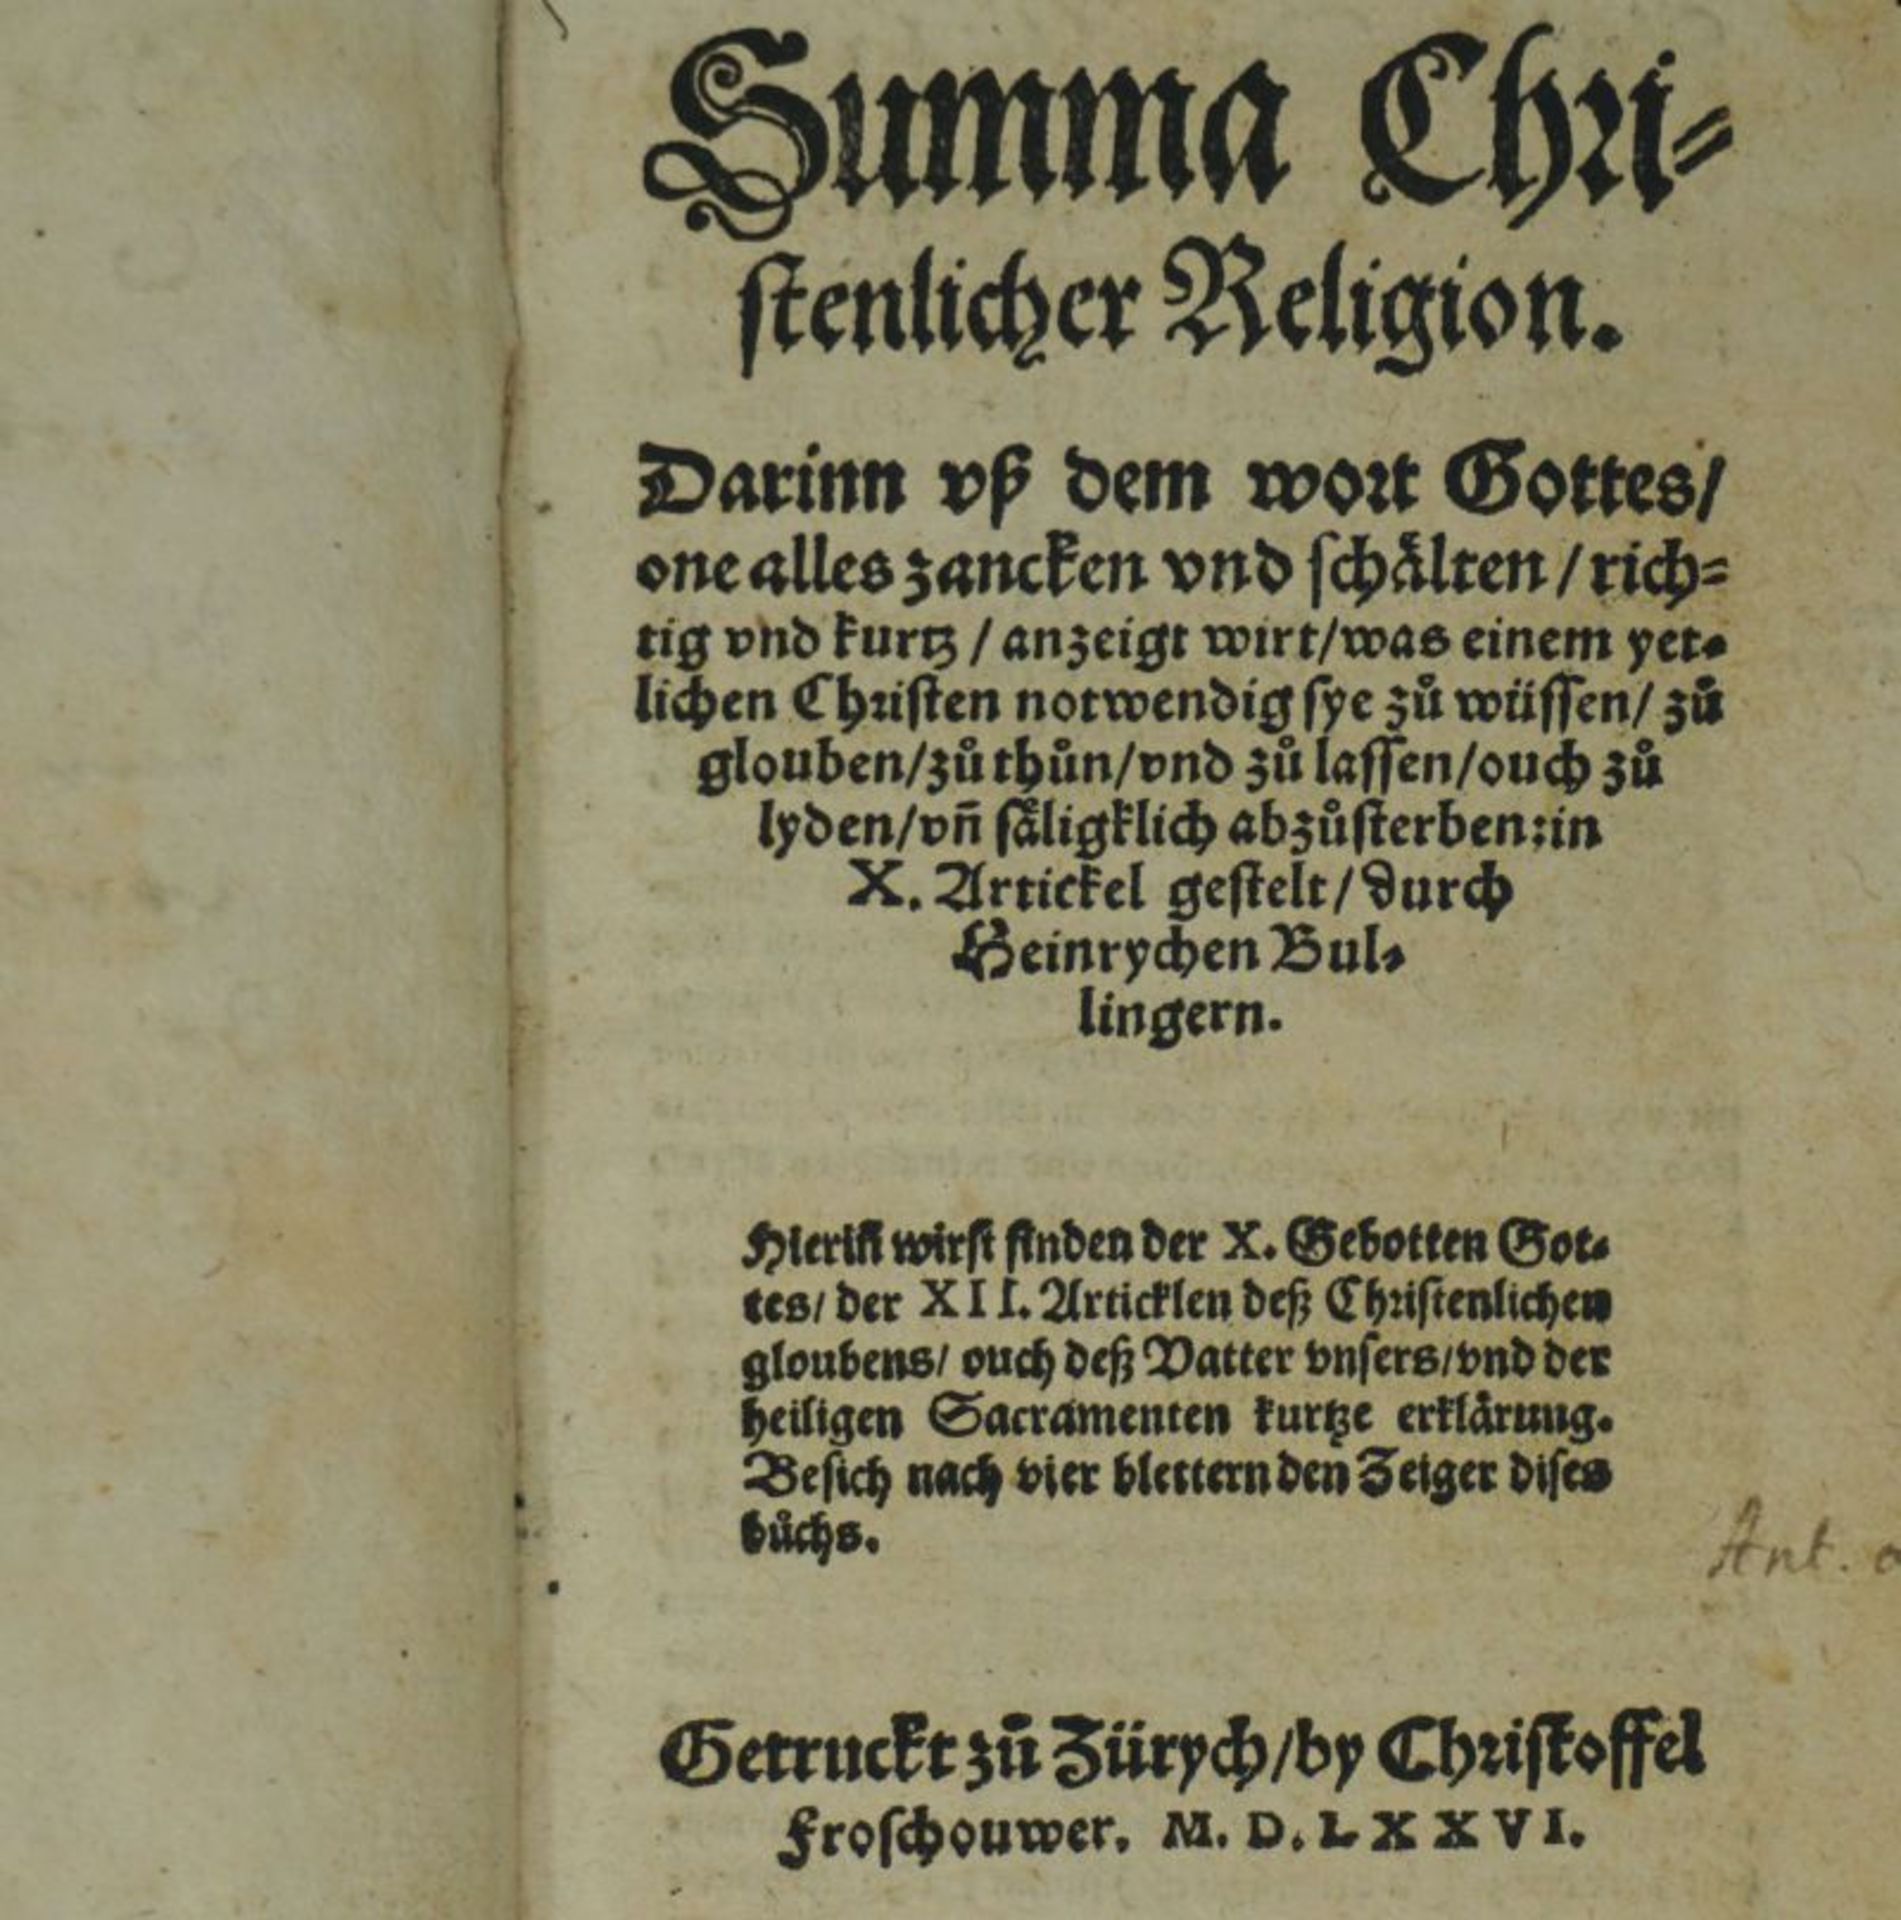 Summa Chri=
ſtenlicher Religion.
Darinn vß dem wort Gottes/
one alles zancken vnd ſchaͤlten / rich=
tig vnd kurtz / anzeigt wirt/was einem yet=
lichen Chriſten notwendig ſye zuͦ wüſſen/ zuͦ
glouben/zuͦ thuͦn/vnd zuͦ laſſen/ouch zuͦ
lyden/vn̄ ſaͤligklich abzuͦſterben:in
X. Artickel geſtelt/ durch
Heinrychen Bul=
lingern.
Hierin̄ wirſt finden der X. Gebotten Got=
tes/ der XII. Articklen deß Chriſtenlichen
gloubens/ ouch deß Vatter vnſers/vnd der
heiligen Sacramenten kurtze erklaͤrung.
Beſich nach vier blettern den Zeiger diſes
buͦchs.
Ant.
Getruckt zuͦ Zürych/by Chriſtoffel
Froſchouwer. M. D. LXXVI.